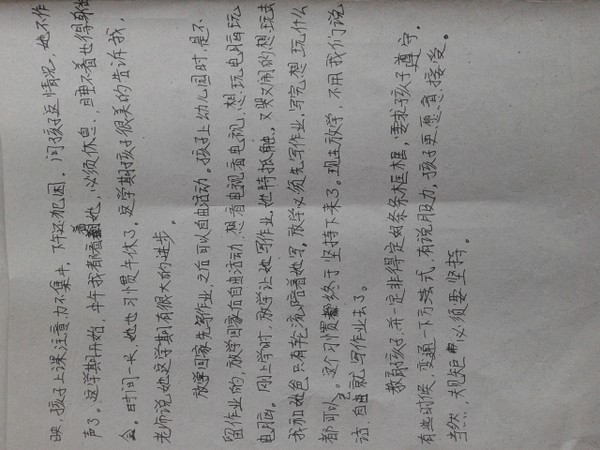 映，孩子上课注意力不集中，下午还犯困。问孩子这情况，她不作
声了。这学期开始，中午我都看着她，必须休息，睡不着也得躺
会。时间一长，她也习惯午休了，这学期孩子很美的告诉我，
老师说她这学期有很大的进步。
放学回家先写作业，之后可以自由活动。孩子上幼儿园时，是不
留作业的，放学回家后自由活动，想看电视看电视，想玩电脑玩
电脑。刚上学时，放学让她写作业，她特抵触，又哭又闹的，想玩去
我和她爸只有轮流陪着她写，放学必须先写作业，写完，想玩什么
都可以。这个习惯终于坚持下来了。现在放学，不用我们说
话，自己就写作业去了。
教育孩子并一定非得定如条条框框，要求孩子遵守，
有些时候，变通一下方法式，有说服力，孩子更愿意接受。
当然，大规矩必须要坚持。